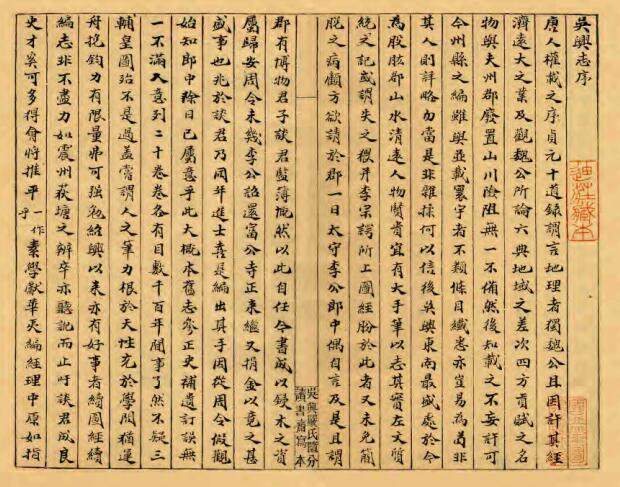 吳興志序
唐人權載之序貞元十道録謂言地理者獨魏公且因許其經
濟遠大之業及觀魏公所論六典地域之差次四方貢賦之名
物與夫州郡廢置山川險阻無一不備然後知載之不妄許可
今州縣之編雖與並載寰宇者不類條目纖悉亦豈易為苟非
其人則詳略勿當是非雜揉何以信後吳興東南最盛處於今
為股肱郡山水清遠人物賢貴宜有大手筆以志其實左文質
統之記或謂失之穢并李宗諤所上圖經盼於此者又未免簡
脱之病顧方欲請於郡一日太守李公郎中偶自言及是且謂
郡有博物君子談君賢簿慨然以此自任今書成以鋟木之資
屬歸安周令未幾李公詒還富公寺正来繼又捐金以竟之甚
盛事也兆於談君乃同年進士喜是編出其手因從周令假觀
始知郎中除日已屬意乎此大概本舊志參正史補遺訂誤無
一不滿人意列二十卷卷各有目數千百年間事了然不疑三
輔皇圖殆不是過盖嘗謂人之筆力根於天性充於學問猶運
舟挽鈞力有限量弗可强勉紹興以来亦有好事者續圖經續
編志非不盡力如震州荻塘之辨卒亦聽訛而止吁談君成良
史才奚可多得會將推乎一作乎素學獻華天編經理中原如指
吳興嚴氏隨分
讀書齋寫本